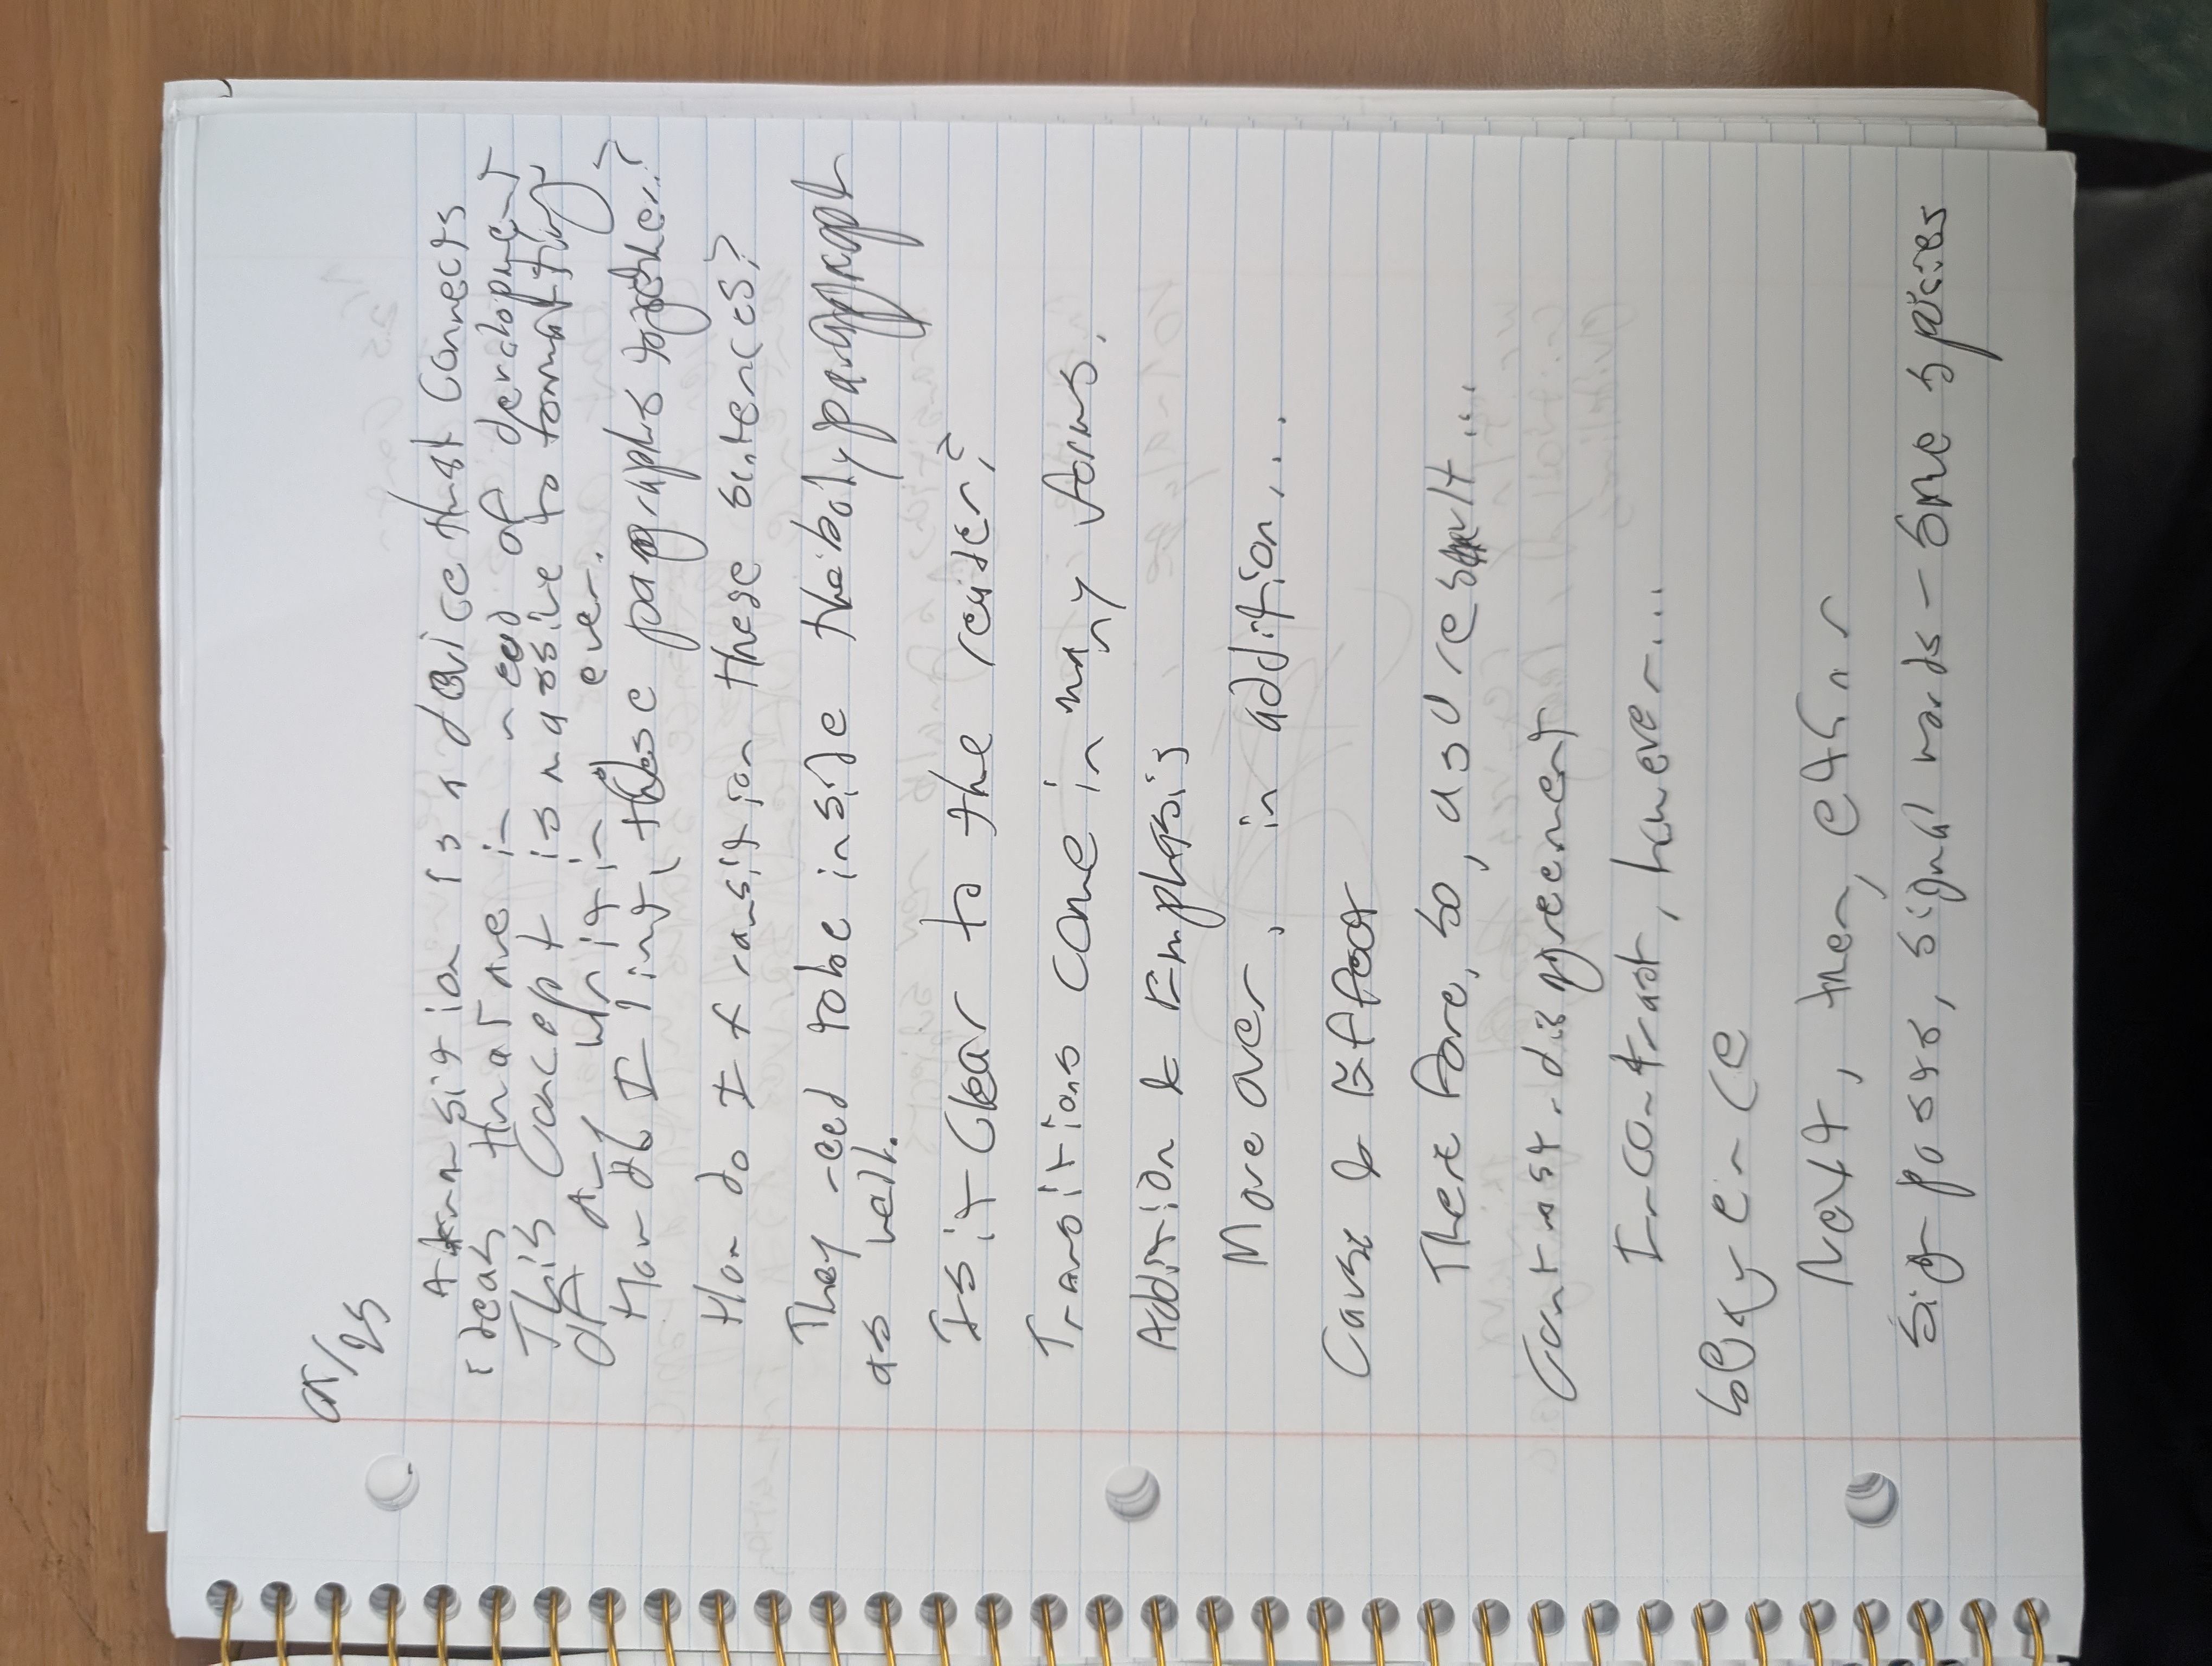 /25
A transition is a device that connects
ideas that are in need of development
This concept is massive to formatting
of any writing ever.
How do I link these paragraphs together?
How do I transition these sentences?
They need to be inside the body paragraph
as well.
Is it clear to the reader?
Transitions come in many forms.
Addition & Emphasis
Moreover, in addition...
Cause & Effect
Therefore, so, as a result...
Contrast - disagreement
In contrast, however...
Sequence
Next, then,
Sign posts, signal words - same species